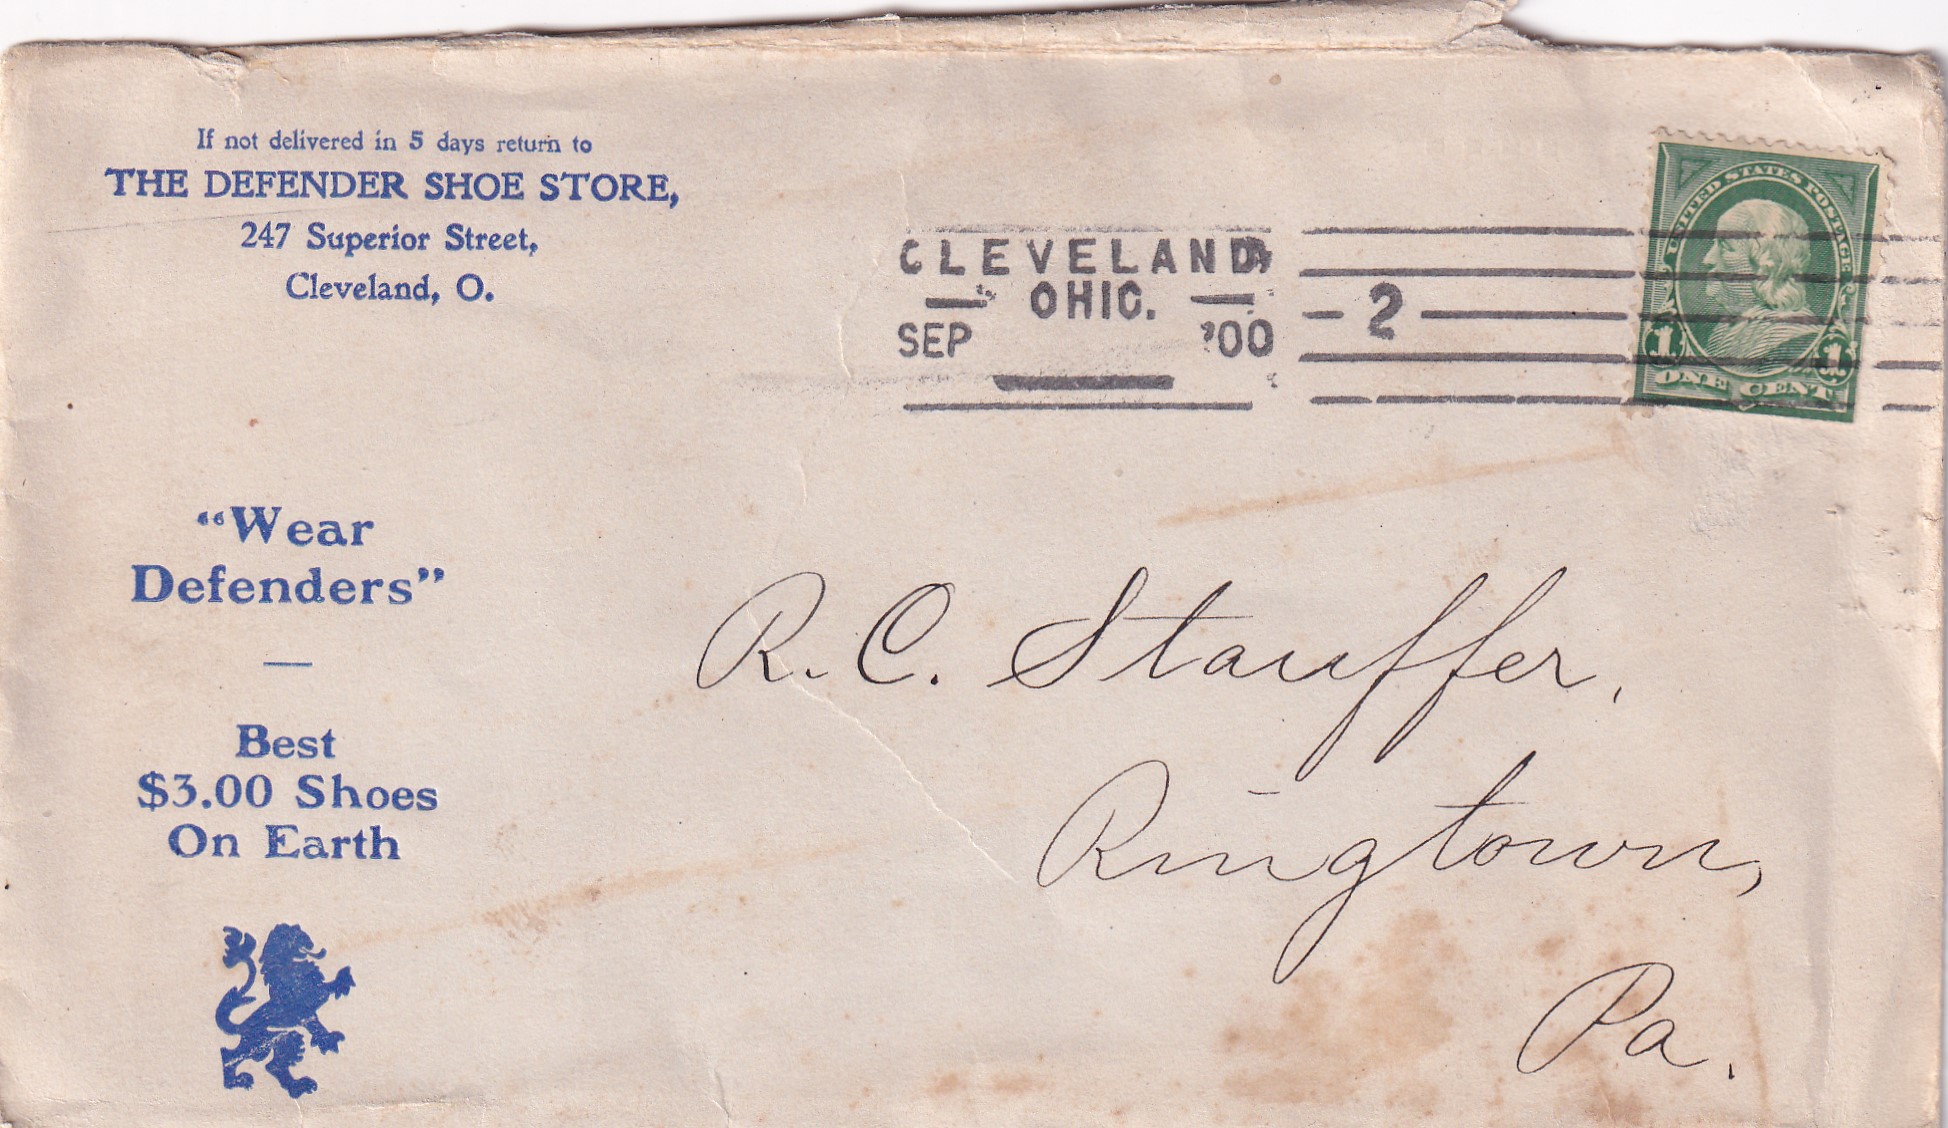 If not delivered in 5 days return to
THE DEFENDER SHOE STORE,
247 Superior Street,
Cleveland, O.
CLEVELAND,
OHIO.
SEP '00
2
UNITED STATES POSTAGE
1 1
ONE CENT
"Wear
Defenders"
Best
$3.00 Shoes
On Earth
R. C. Stauffer,
Ringtown,
Pa.